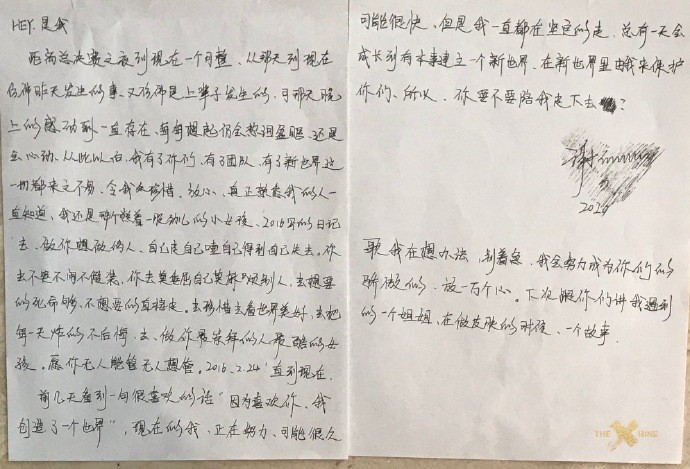 HEY.是我
距离总决赛之夜到现在一个月整,从那天到现在
仿佛昨天发生的事、又仿佛是上辈子发生的,可那天晚
上的感动到一直存在,每每想起仍会热泪盈眶、还是
会心动,从此以后,我有了你们,有了团队,有了新世界这
一切都来之不易,令我更珍惜。放心,真正想念我的人一
直知道,我还是那个憋着一股劲儿的小女孩、2016写的日记
去、做你想做的人、自己走自己嗑自己得到自己失去。你
去不要不闻不假装,你去莫委屈自己莫麻烦别人,去想要
的就死命够,不想要的直接走。去珍惜去看世界美好,去把
每一天炸的不后悔,去、做你最崇拜的人最酷的女
孩。愿你无人能管无人想管。2016.2.24 直到现在.
前几天看到一句很喜欢的话"因为喜欢你、我
创造了一个世界",现在的我、正在努力、可能很久
可能很快、但是我一直都在坚定的走,总有一天会
成长到有本事建立一个新世界、在新世界里由我来保护
你们、所以、你要不要陪我走下去?
歌我在想办法,别着急、我会努力成为你们的
骄傲的、放一万个心。下次跟你们讲我遇到
的一个姐姐,在做皮肤的时候、一个故事.
THE X SHINE